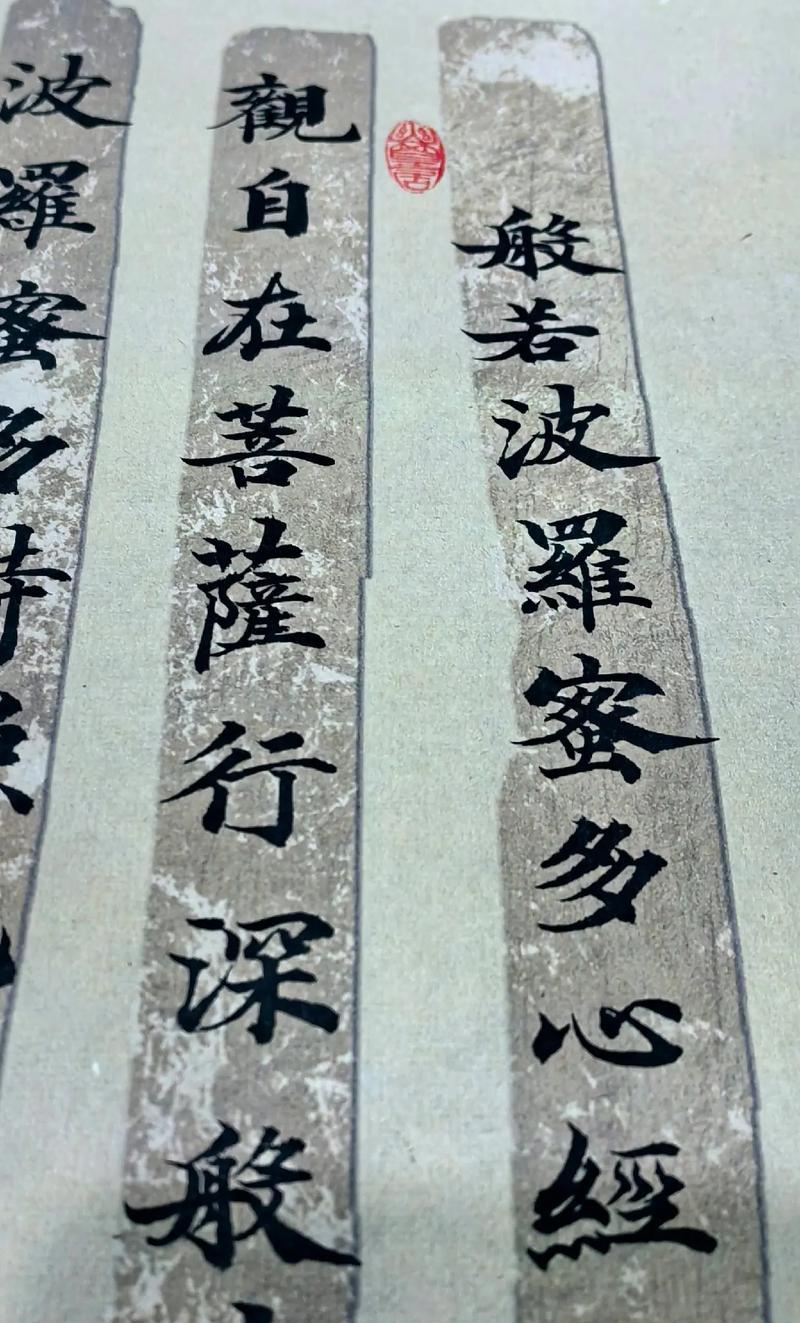 般若波羅蜜多心經
觀自在菩薩行深般
波羅蜜多時照見